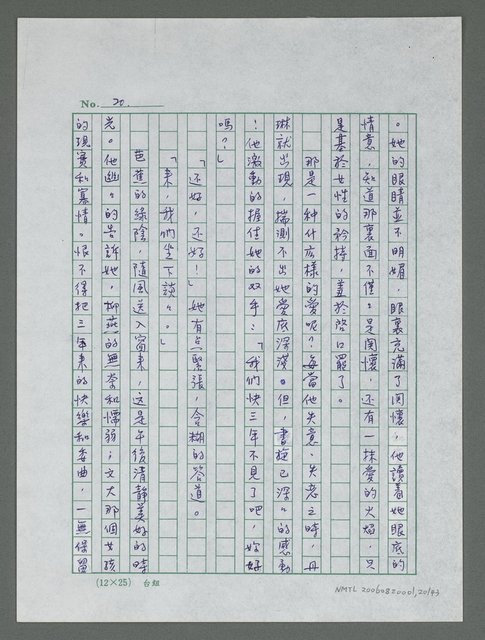 No. 20.
。她的眼睛並不明媚，眼裏充滿了関懷，他讀着她眼底的
情意，知道那裏面不僅々是関懷，还有一抹愛的火焰，只
是基於女性的衿持，羞於啓口罷了。
那是一种什広樣的愛呢？每當他失意、失志之時，丹
琳就出現，揣測不出她愛底深淺。但，書旋已深々的感動
！他激動的握住她的双手：「我們快三年不見了吧，妳好
嗎？」
「还好，还好！」她有点緊張，含糊的答道。
「來，我們坐下談々。」
芭蕉的綠陰，隨風送入窗來，这是午後清靜美好的時
光。他幽々的告訴她，柳燕的無奈和懦弱；文大那個女孩
的現實和寡情。恨不得把三年來的快樂和委曲，一無保留
(12×25) 台組
NMTL 20060820001,20/43